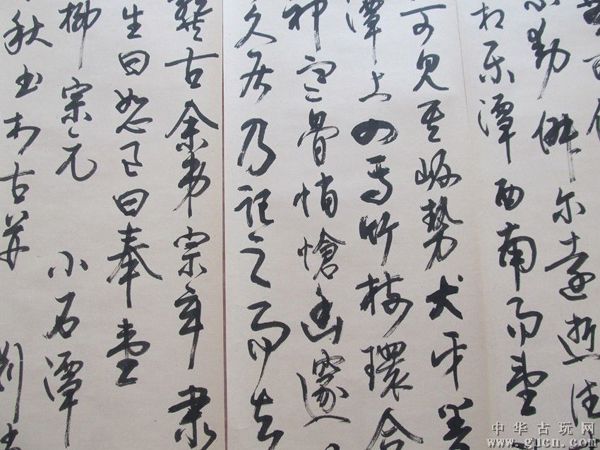 不動俶尔遠逝往
相樂潭西南而望
可見其岸勢犬牙差
潭上四面竹樹環合
神寒骨悄愴幽邃
久居乃記之而去
龔古余弟宗玄隸
生曰恕己曰奉壹
柳宗元 小石潭
秋
中华古玩网
www.gucn.com